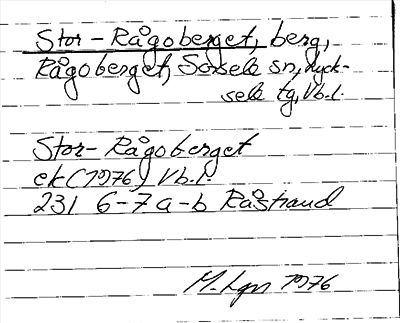 Stor-Rågoberget, berg,
Rågoberget, Sorsele sn, Lyck-
sele tg, Vb.l.
Stor-Rågoberget
ek (1976) Vb.l.
231 6-7 a-b Råstrand
M. Lgn 1976